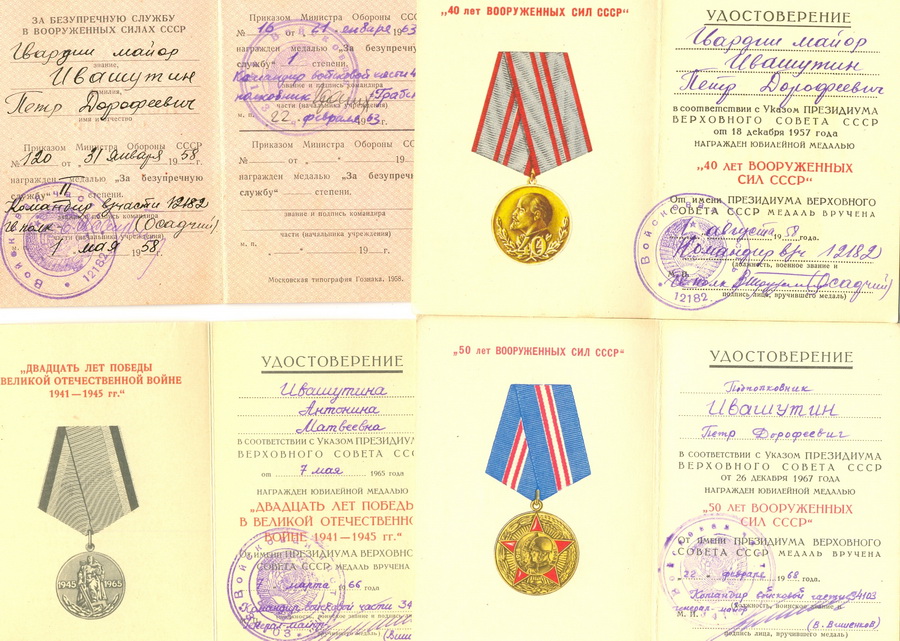 ЗА БЕЗУПРЕЧНУЮ СЛУЖБУ
В ВООРУЖЕННЫХ СИЛАХ СССР
Гвардии майор
звание,
Ивашутин
фамилия,
Петр Дорофеевич
имя и отчество
Приказом Министра Обороны СССР
№ 120 от „31 января 1958 г.
награжден медалью „За безупречную
службу“ II степени.
Командир в/части 12182
гв полк (Осадчий)
части (начальника учреждения)
1 мая 1958 г.
Приказом Министра Обороны СССР
№ 16 от 21 января 1963
награжден медалью „За безупречную
службу“ 1 степени.
Командир войсковой части
звание и подпись командира
полковник
части (начальника учреждения)
22 февраля 63
Приказом Министра Обороны СССР
№ — от „ “ 19
награжден медалью „За безупречную
службу“ — степени.
звание и подпись командира
м. п.
части (начальника учреждения)
„ “ 19 г.
Московская типография Гознака. 1958.
„40 лет ВООРУЖЕННЫХ СИЛ СССР“
40
УДОСТОВЕРЕНИЕ
Гвардии майор
Ивашутин
Петр Дорофеевич
в соответствии с Указом ПРЕЗИДИУМА
ВЕРХОВНОГО СОВЕТА СССР
от 18 декабря 1957 года
НАГРАЖДЕН ЮБИЛЕЙНОЙ МЕДАЛЬЮ
„40 ЛЕТ ВООРУЖЕННЫХ
СИЛ СССР“
От имени ПРЕЗИДИУМА ВЕРХОВНОГО
СОВЕТА СССР МЕДАЛЬ ВРУЧЕНА
1 августа 1958 года.
Командир в/ч 12182
(должность, военное звание и
М. П.
гв полк (Осадчий)
подпись лица, вручившего медаль)
12182
„ДВАДЦАТЬ ЛЕТ ПОБЕДЫ
ВЕЛИКОЙ ОТЕЧЕСТВЕННОЙ ВОЙНЕ
1941—1945 гг.“
1945 1965
УДОСТОВЕРЕНИЕ
Ивашутина
Антонина
Матвеевна
В СООТВЕТСТВИИ С УКАЗОМ ПРЕЗИДИУМ
ВЕРХОВНОГО СОВЕТА СССР
от 7 мая 1965 года
НАГРАЖДЕН ЮБИЛЕЙНОЙ МЕДАЛЬЮ
„ДВАДЦАТЬ ЛЕТ ПОБЕДЫ
В ВЕЛИКОЙ ОТЕЧЕСТВЕННО
ВОЙНЕ 1941—1945 гг.“
ОТ ИМЕНИ ПРЕЗИДИУМА ВЕРХОВНО
СОВЕТА СССР МЕДАЛЬ ВРУЧЕНА
7 марта 1966 года
Командир войсковой части 34
генерал-майор
„50 лет ВООРУЖЕННЫХ СИЛ СССР“
УДОСТОВЕРЕНИЕ
Подполковник
Ивашутин
Петр Дорофеевич
В СООТВЕТСТВИИ С УКАЗОМ ПРЕЗИДИУМА
ВЕРХОВНОГО СОВЕТА СССР
ОТ 26 ДЕКАБРЯ 1967 ГОДА
НАГРАЖДЕН ЮБИЛЕЙНОЙ МЕДАЛЬЮ
„50 ЛЕТ ВООРУЖЕННЫХ
СИЛ СССР“
ОТ ИМЕНИ ПРЕЗИДИУМА ВЕРХОВНОГО
СОВЕТА СССР МЕДАЛЬ ВРУЧЕНА
„22 “ февраля 1968 г.
Командир войсковой части 34103
(должность, воинское звание и
генерал-майор
М. П.
(В. Вишенков)
подпись лица, вручившего медаль)